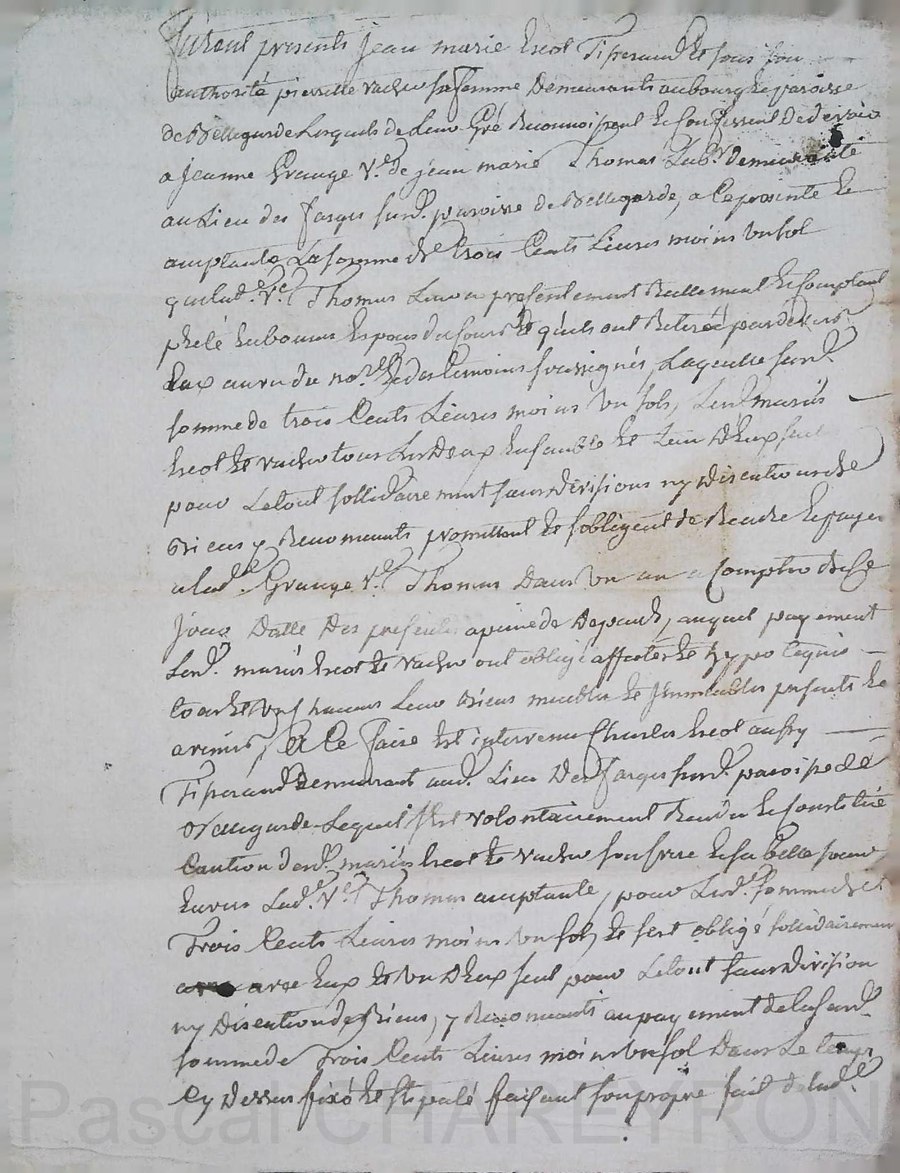 furent presents Jean marie heot Tisserand et sous son
authorité pierrette vacher sa femme Demeurants au bourg et paroisse
de Bellegarde Lesquels de Leur Gré Reconnoissent et Confessent devoir
a Jeanne Grange Ve. de jean marie Thomas Labr. demeurante
au Lieu des farges susd. paroisse de Bellegarde, a Ce presente et
acceptante La somme de trois Cents Livres moins un sol
que lad. Ve. Thomas Leur a presentement Reellement et Comptant
en bonnes Especes du Cours et qu'ils ont Retiré pardevers
Eux au vu du no.re et des temoins soussignés, Laquelle susd.
somme de trois Cents Livres moins un sols, Lesd. mariés
heot et vacher tous Les Deux Ensemble et L'un D'Eux seul
pour Le tout sollidairement sans division ny discution de
Biens y Renonceants promettent et s'obligent de Rendre et payer
a lad. Grange Ve. Thomas Dans un an a Compter de Ce
jour Datte Des presentes a peine de Depends, auquel payement
Lesd. mariés heot et vacher ont obligé affecter et hypotequé
tous et uns chacuns Leur Biens meubles et Immeubles presents et
avenir, A Ce faire Est intervenu Charles heot aussy
Tisserand Demeurant aud. Lieu Des farges susd. paroisse de
Bellegarde Lequel s'Est volontairement Rendu et Constitué
Caution desd. mariés heot et vacher son frere et sa belle soeur
Envers Lad. Ve. Thomas acceptante, pour Lasd. somme de
Trois Cents Livres moins un sol, et s'est obligé solidairement
avec Eux et un D'Eux seul pour Le tout sans division
ny Discution de Biens, y Renonceants au payement de la susd.
somme de Trois Cents Livres moins un sol Dans Le temps
Cy Dessus fixé et stipulé faisant son propre fait de lad.
Pascal CHAREYRON